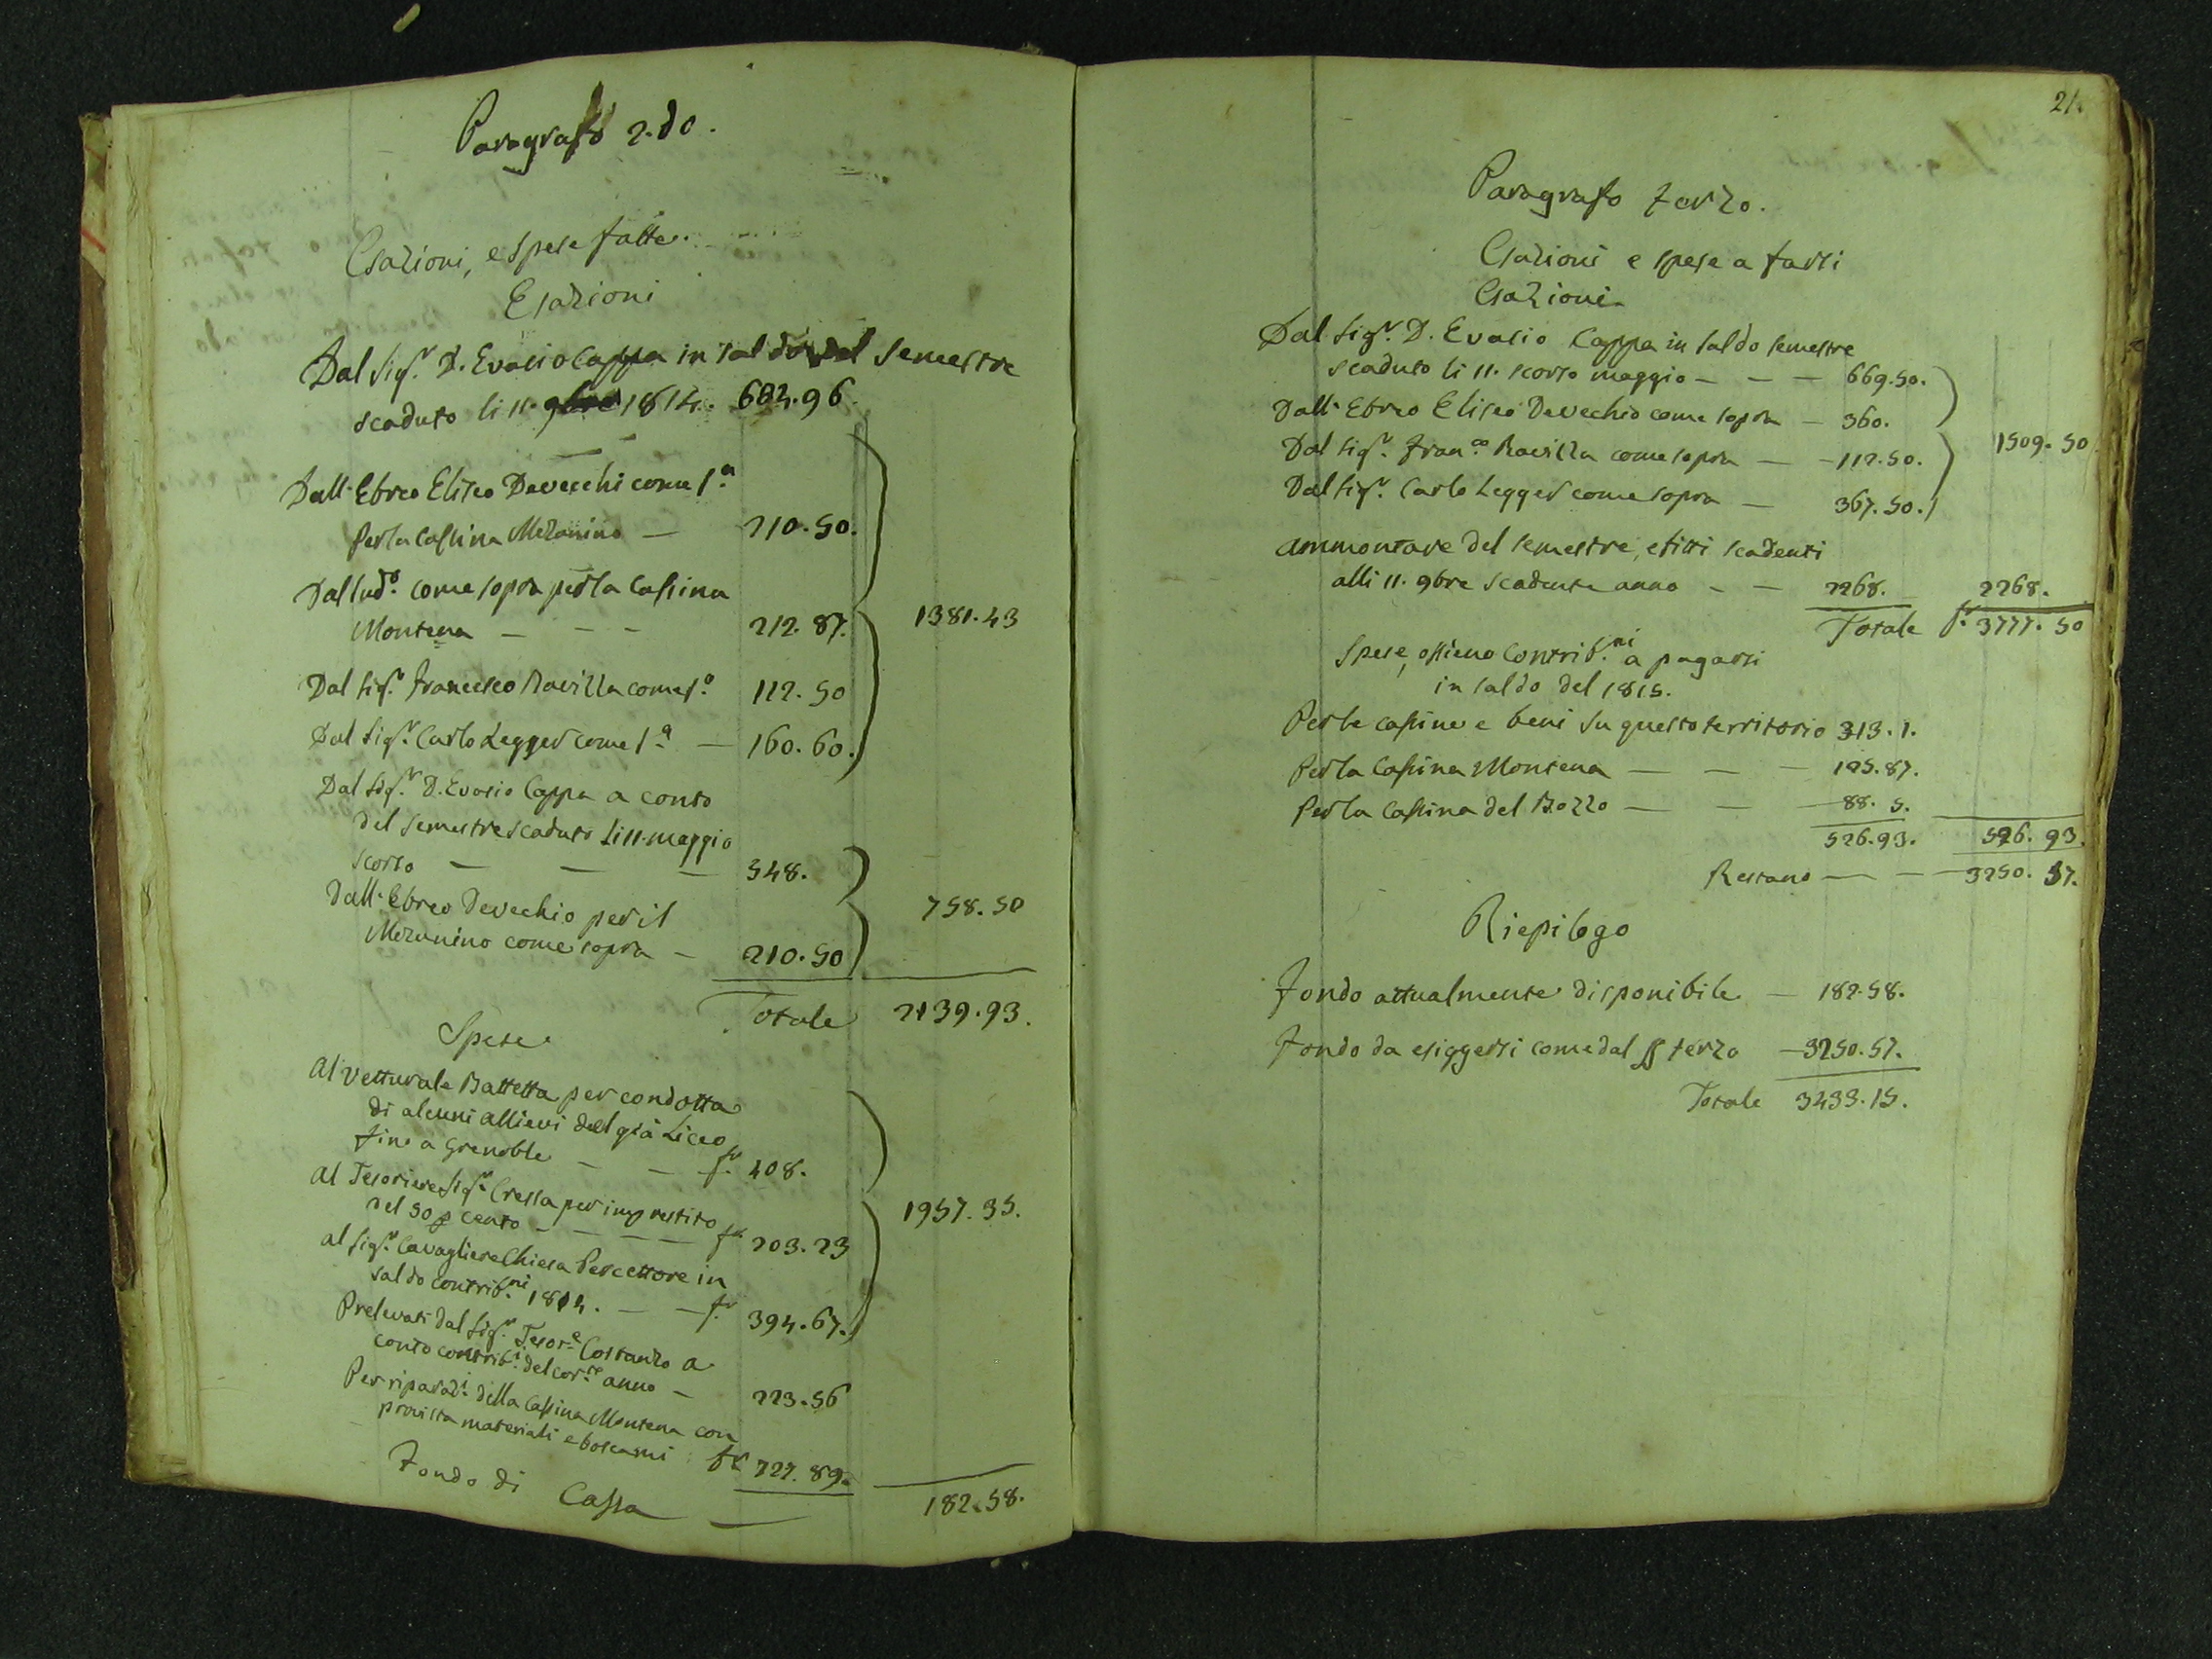 Paragrafo 2.do.
Esazioni, e spese fatte.
Esazioni
Dal Sigr. D. Evasio Cappa in saldo del semestre
scaduto li 11. 9bre 1814. 684.96
Dall'Ebreo Eliseo Devecchi come s.a
per la Cassina Mezanino — 210.50.
Dal sud.o come sopra per la Cassina
Montena — — — 212.87.
1381.43
Dal Sigr. Francesco Ravilla come s.a 112.50
Dal Sigr. Carlo Legger come s.a — 160.60.
Dal Sigr. D. Evasio Cappa a conto
del semestre scaduto li 11. maggio
scorso — — — 548.
Dall'Ebreo Devechio per il
758.50
Mezanino come sopra — 210.50
Totale 2139.93.
Spese
Al Vetturale Battetta per condotta
di alcuni allievi del già Liceo
fino a Grenoble — — fr. 408.
Al Tesoriere Sigr. Cressa per imprestito
del 50 p cento — — — fr. 203.23
1957.35.
Al Sigr. Cavagliere Chiesa Percettore in
saldo contrib.ni 1814. — — fr. 394.67.
Prelevati dal Sigr. Tesor.e Costanzo a
conto contrib.i del cor.te anno — 223.56
Per riparaz.i della Cassina Montena con
provista materiali e boscami fr. 727.89.
Fondo di Cassa — 182.58.
Paragrafo terzo.
Esazioni e spese a farsi
Esazioni
Dal Sigr. D. Evasio Cappa in saldo semestre
scaduto li 11. scorso maggio — — — 669.50.
Dall'Ebreo Eliseo Devechio come sopra — 360.
Dal Sigr. Fran.co Ravilla come sopra — 112.50.
1509.50
Dal Sigr. Carlo Legger come sopra — 367.50.
Ammontare del semestre, e fitti scadenti
alli 11. 9bre scadente anno — — 2268. 2268.
Totale fr. 3777.50
Spese, ossieno Contrib.ni a pagarsi
in saldo del 1815.
Per le cassine e beni su questo territorio 313.1.
Per la Cassina Montena — — — 125.87.
Per la Cassina del Bozzo — — 88.5.
526.93. 526.93.
Restano — — 3250.57.
Riepilogo
Fondo attualmente disponibile — 182.58.
Fondo da esiggersi come dal § terzo — 3250.57.
Totale 3433.15.